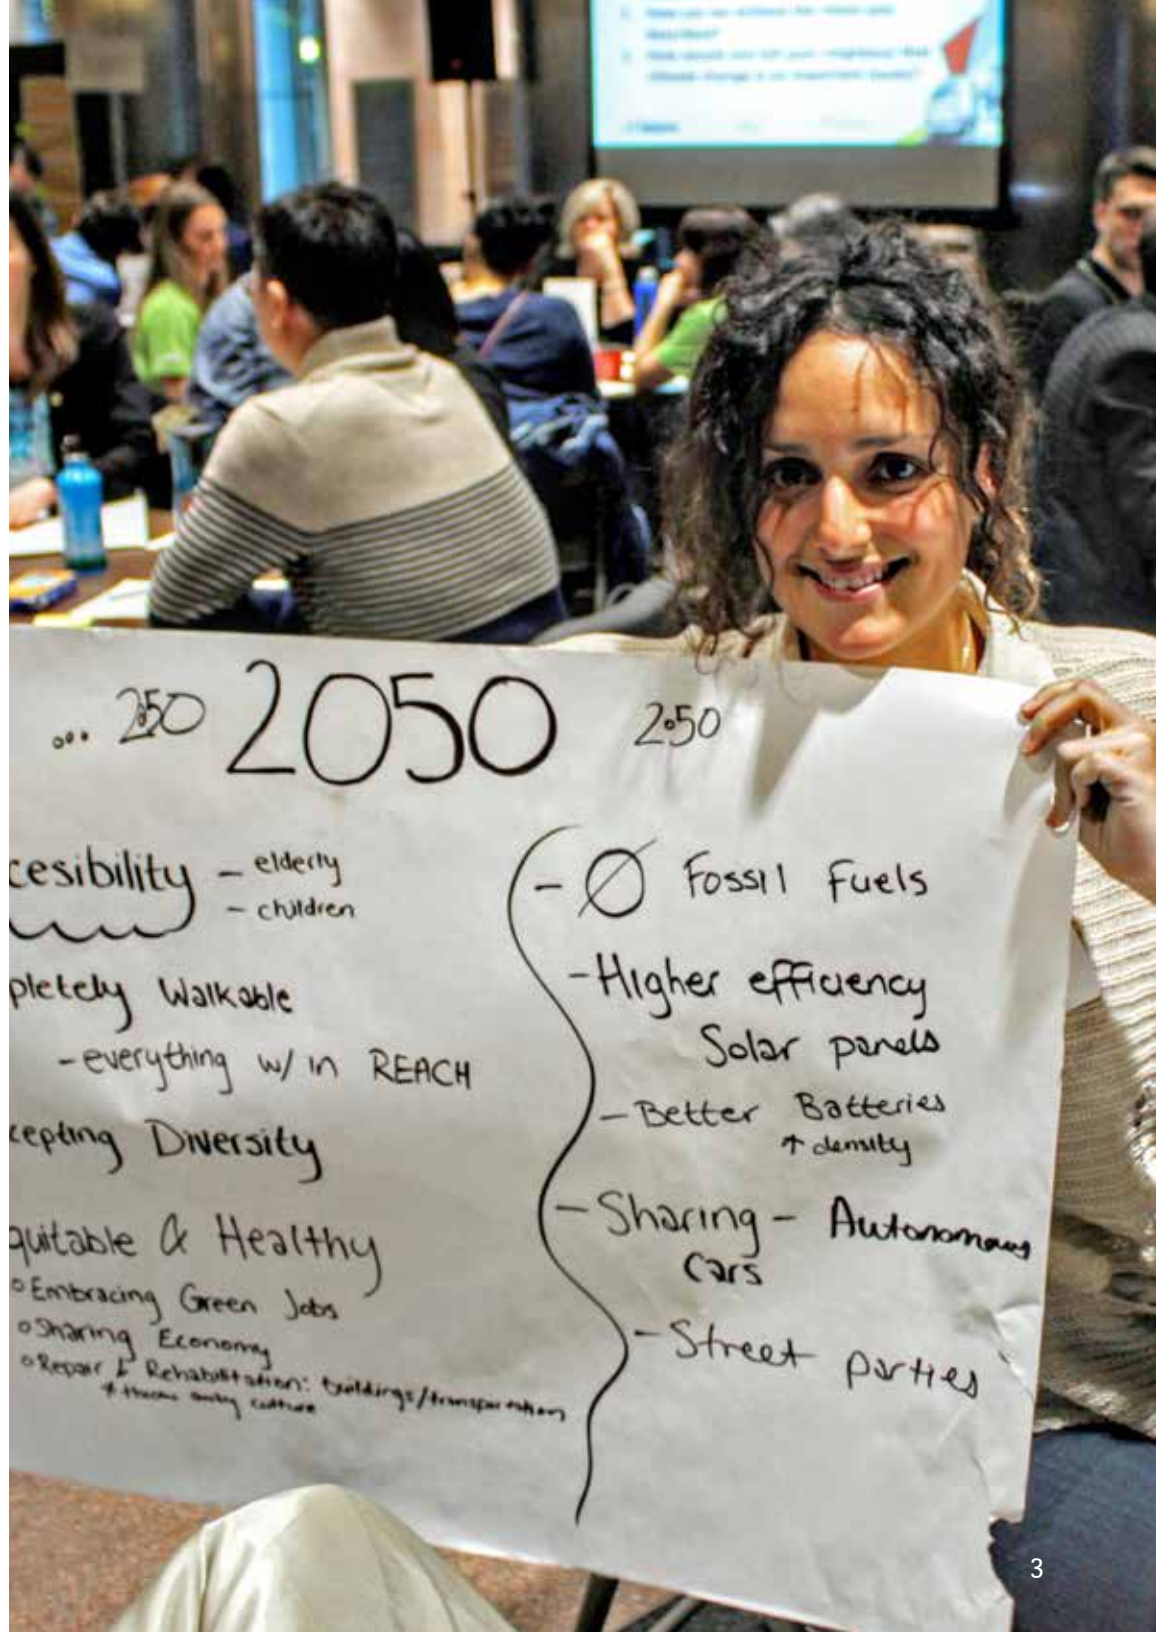 climate change is an important issue?
... 2050 2050 2050
cesibility - elderly
- children
pletely Walkable
- everything w/in REACH
cepting Diversity
quitable & Healthy
o Embracing Green Jobs
o Sharing Economy
o Repair & Rehabilitation: buildings/transportation
≠ throw away culture
- Ø Fossil Fuels
- Higher efficiency
Solar panels
- Better Batteries
↑ density
- Sharing - Autonomous
Cars
- Street parties
3